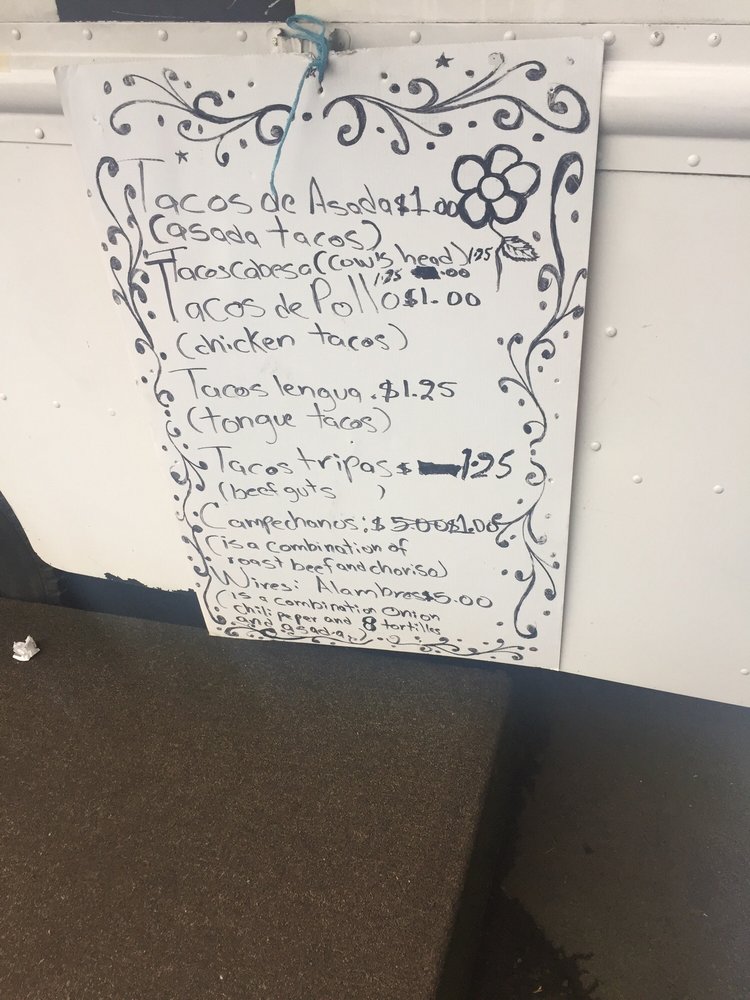 Tacos de Asada $1.00
(asada tacos)
Tacos cabesa (cow's head) 1.25
1.25 .00
Tacos de Pollo $1.00
(chicken tacos)
Tacos lengua . $1.25
(tongue tacos)
Tacos tripas $ 1.25
(beef guts )
Campechanos: $ 500 $1.00
(is a combination of
roast beef and choriso)
Wires: Alambres $5.00
(is a combination onion
chili peper and 8 tortilles
and asada)